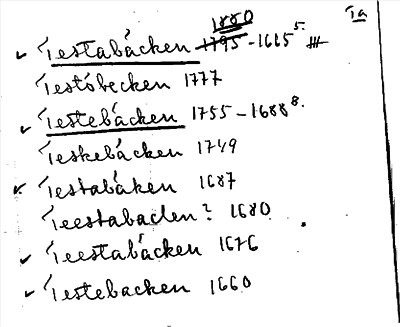 1880 Ia
Testabäcken 1795-1665 5. #
Testöbecken 1777
Testebäcken 1755-1688 8.
Teskebäcken 1749
Testabäken 1687
Teestabaclen? 1680
Teestabäcken 1676
Testebacken 1660